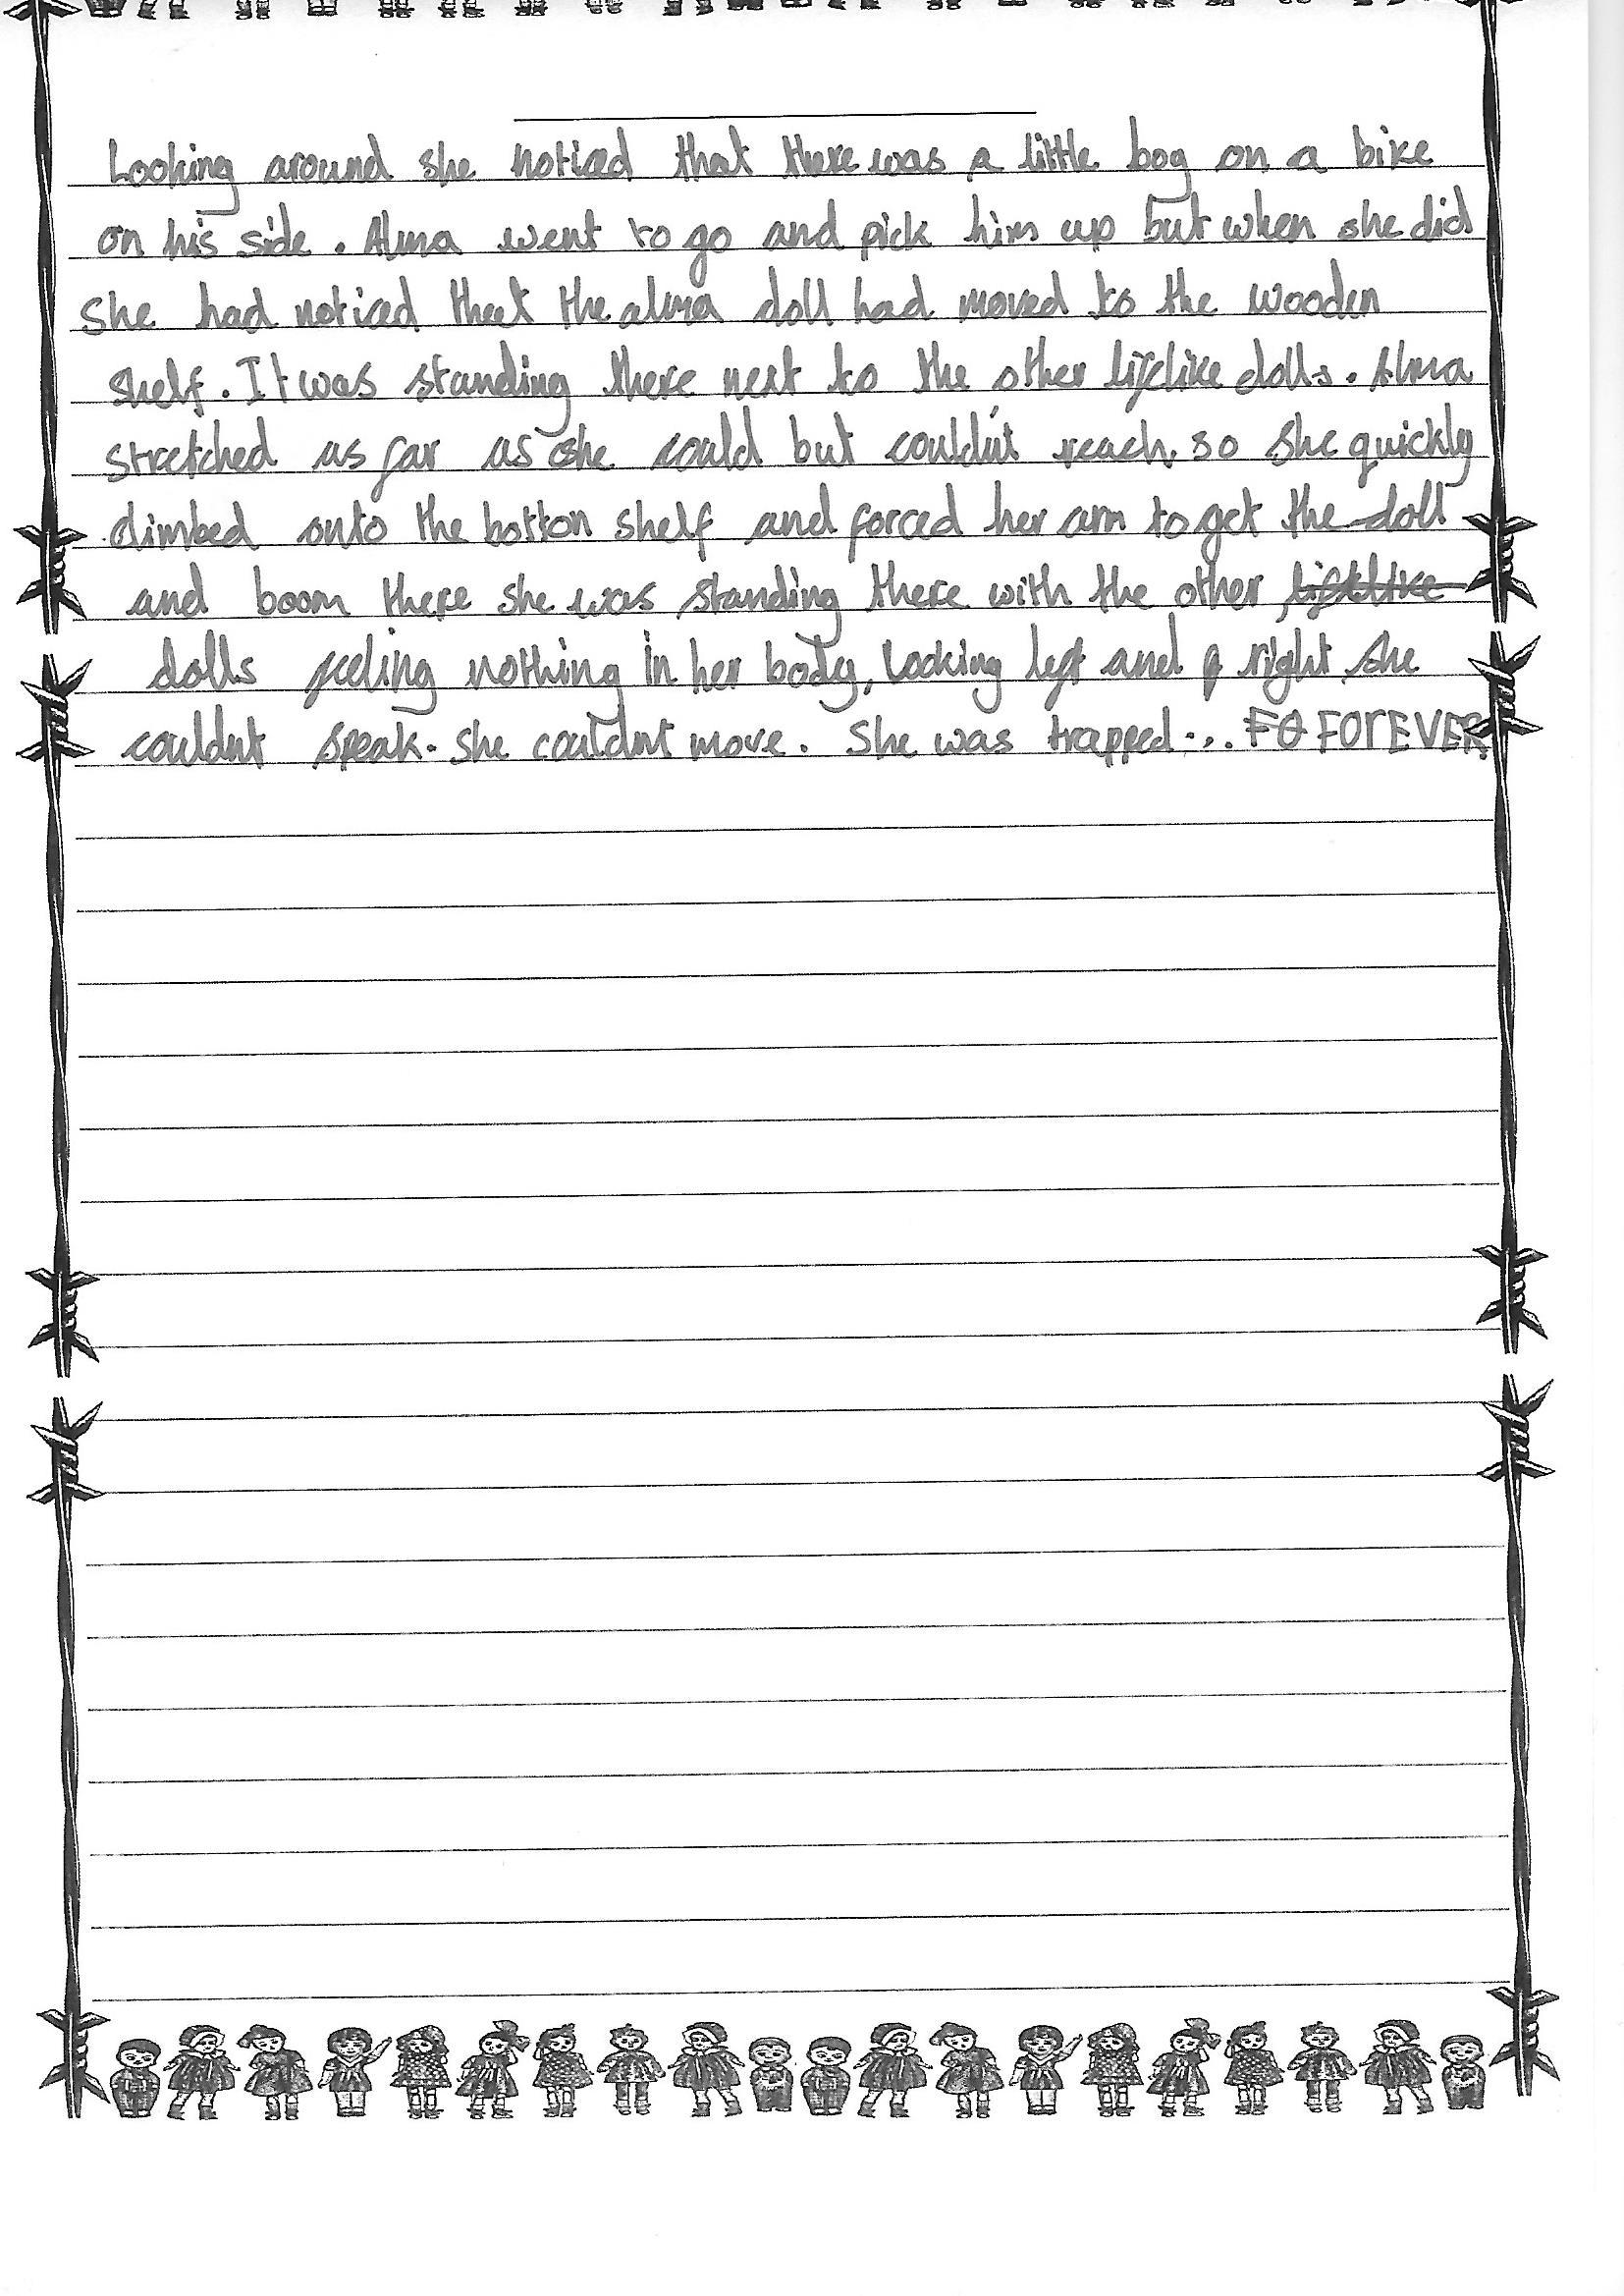 Looking around she noticed that there was a little boy on a bike
on his side. Alma went to go and pick him up but when she did
she had noticed that the alma doll had moved to the wooden
shelf. It was standing there next to the other lifelike dolls. Alma
stretched as far as she could but couldn't reach so she quickly
climbed onto the botton shelf and forced her arm to get the doll
and boom there she was standing there with the other
dolls feeling nothing in her body, Looking left and right she
couldnt speak. She couldnt move. She was trapped... FO FOREVER